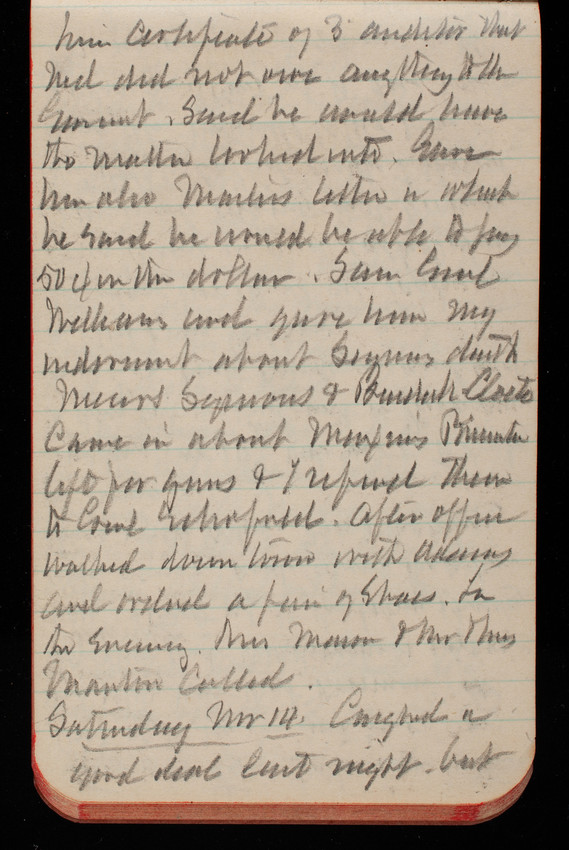 him certificate of 3 auditor that
he did not owe anything to the
Goverment. Said he would have
the matter looked into. Gave
him also letter in which
he said he would be able to pay
50¢ on the dollar. Saw Genl
Williams and gave him my
indorsment about
Messrs &
Came in about
left for guns & I referred them
to Genl Schofield. After office
walked down town with Adams
and ordered a pair of Shoes. In
the Evening. Miss Mason & Mr & Mrs
called.
Saturday Nov 14. Coughed a
good deal last night. but